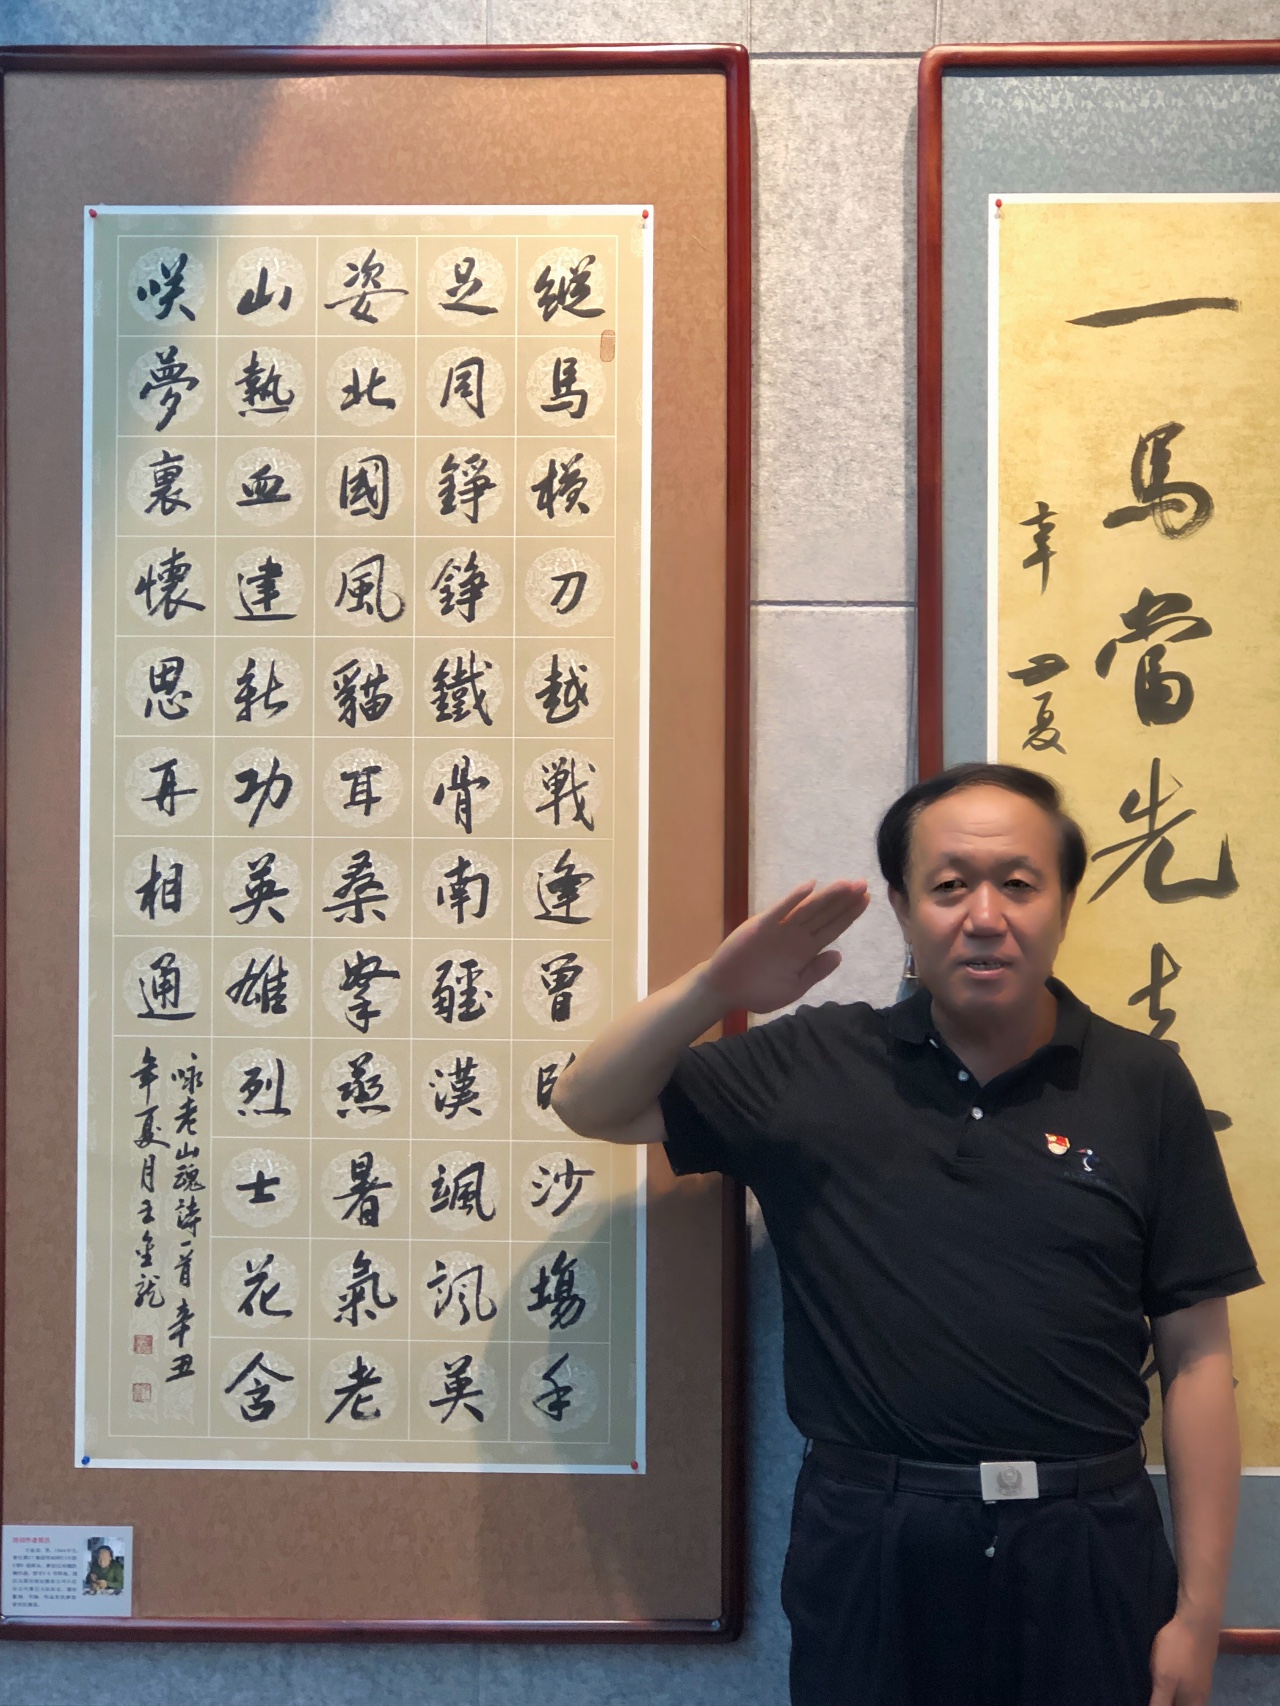 縱馬橫刀越戰逢曾沙場手
足同錚錚鐵骨南疆漢颯颯英
姿北國風貓耳桑拏蒸暑氣老
山熱血建新功英雄烈士花含
咲夢裏懷恩再相通
咏老山魂詩一首辛丑
年夏月王金龍
一馬當先
辛丑夏